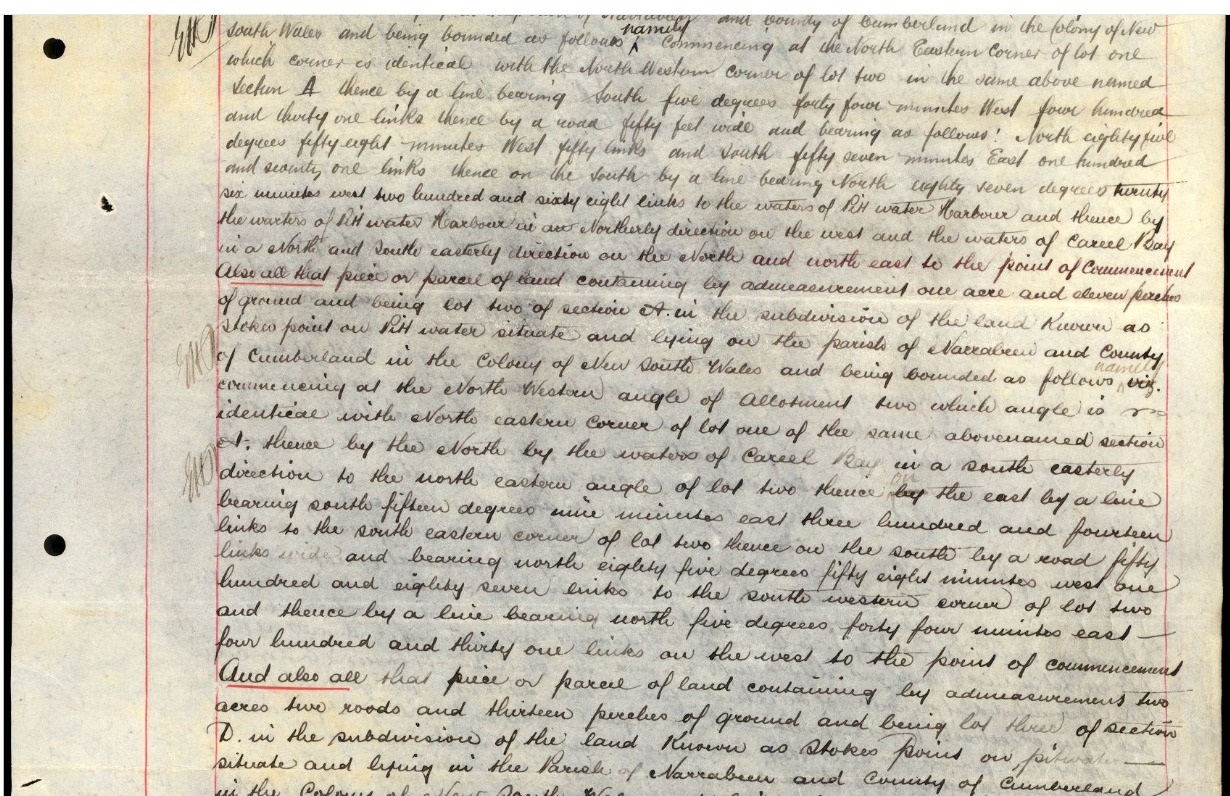 Narrabeen and County of Cumberland in the Colony of New
namely
South Wales and being bounded as follows ^ Commencing at the North Eastern Corner of lot one
which corner is identical with the North Western corner of lot two in the same above named
Section A thence by a line bearing South five degrees forty four minutes West four hundred
and thirty one links thence by a road fifty feet wide and bearing as follows: North eighty five
degrees fifty eight minutes West fifty links and South fifty seven minutes East one hundred
and seventy one links thence on the South by a line bearing North eighty seven degrees twenty
six minutes west two hundred and sixty eight links to the waters of Pitt water Harbour and thence by
the warters of Pitt water Harbour in an Northerly direction on the west and the waters of Careel Bay
in a North and South easterly direction on the North and north east to the point of Commencement
Also all that piece or parcel of land containing by admeasurement one acre and eleven perches
of ground and being lot two of section A. in the subdivision of the land Known as
Stokes point on Pitt water situate and lying on the parish of Narrabeen and County
of Cumberland in the Colony of New South Wales and being bounded as follows, viz.
namely
commencing at the North Western angle of Allotment two which angle is
identical with North eastern corner of lot one of the same abovenamed section
A. thence by the North by the waters of Careel Bay in a south easterly
direction to the north eastern angle of lot two thence by the east by a line
on
bearing south fifteen degrees nine minutes east three hundred and fourteen
links to the south eastern corner of lot two thence on the south by a road fifty
links wide and bearing north eighty five degrees fifty eight minutes west one
hundred and eighty seven links to the south western corner of lot two
and thence by a line bearing north five degrees forty four minutes east —
four hundred and thirty one links on the west to the point of commencement
And also all that piece or parcel of land containing by admeasurement two
acres two roods and thirteen perches of ground and being lot three of section
D. in the subdivision of the land Known as Stokes Point on pitwater —
situate and lying in the Parish of Narrabeen and County of Cumberland
in the Colony of New South Wales